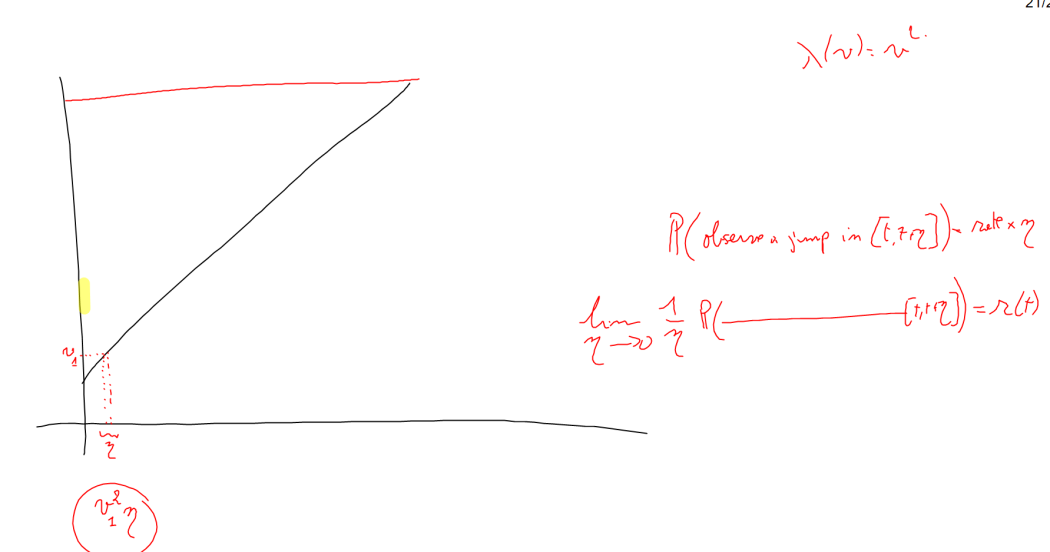 21/2
λ(v) = v².
P(observe a jump in [t, t+η]) ≈ rate × η
lim η→0 1/η P( ——— [t, t+η]) = r(t)
v₁
η
v₁² η